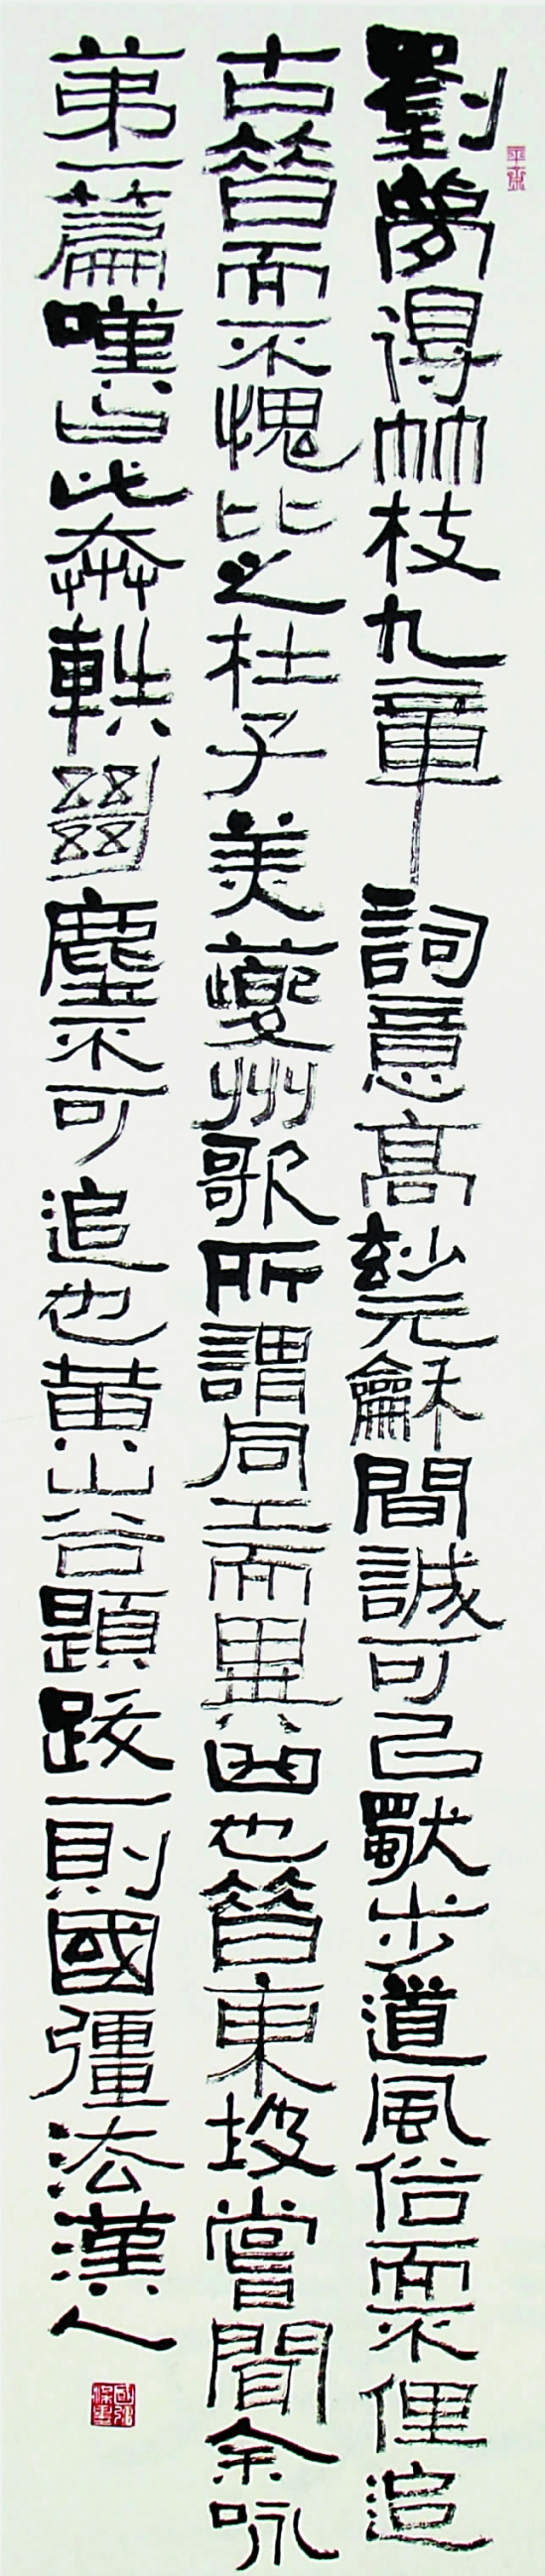 劉夢得竹枝九章詞意高妙元龢間誠可已獨步道風俗而不俚追
古昔而不愧比之杜子美夔州歌所謂同工而異曲也昔東坡嘗聞余咏
弟一篇嘆曰此奔軼絕塵不可追也黃山谷題跋一則國彊法漢人